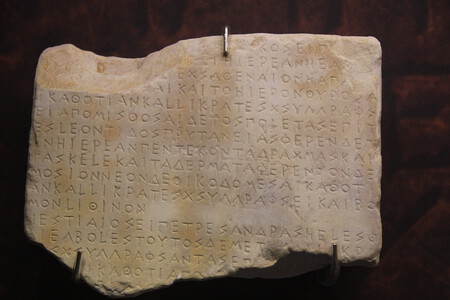 ΚΟΣΕΙΠ
ΗΙΕΡΕΑΝΗΕ
ΕΧΣΑΘΕΝΑΙΟΝΗΑΠΑ
ΑΙΚΑΙΤΟΗΙΕΡΟΝΘΥΡΟΣΑ
ΙΚΑΘΟΤΙΑΝΚΑΛΛΙΚΡΑΤΕΣΧΣΥΛΛΡΑΦΣ
ΕΙΑΠΟΜΙΣΘΟΣΑΙΔΕΤΟΣΠΟΛΕΤΑΣΕΠΙΤ
ΕΣΛΕΟΝΤΙΔΟΣΠΡΥΤΑΝΕΙΑΣΦΕΡΕΝΔΕΤ
ΕΝΗΙΕΡΕΑΝΠΕΝΤΕΚΟΝΤΑΔΡΑΧΜΑΣΚΑΙ
ΤΑΣΚΕΛΕΚΑΙΤΑΔΕΡΜΑΤΑΦΕΡΕΝΤΟΝΔΕ
ΜΟΣΙΟΝΝΕΟΝΔΕΟΙΚΟΔΟΜΕΣΑΙΚΑΘΟΤΙ
ΑΝΚΑΛΛΙΚΡΑΤΕΣΧΣΥΛΛΡΑΦΣΕΙΚΑΙΒΟ
ΜΟΝΛΙΘΙΝΟΝ
ΗΕΣΤΙΑΙΟΣΕΙΠΕΤΡΕΣΑΝΔΡΑΣΗΕΛΕΣΘ
ΑΙΕΛΒΟΛΕΣΤΟΥΤΟΣΔΕΜΕΤΑ
ΟΣΧΣΥΛΛΡΑΦΣΑΝΤΑΣΕΠ
ΚΑΘΟΤΙΑΠΟ